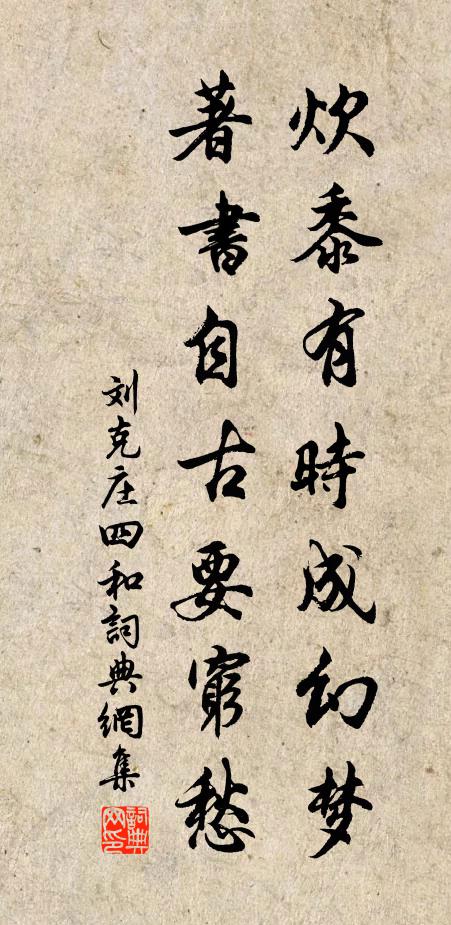 炊黍有時成幻梦
著書自古要窮愁
刘克庄四和詞典網集
詞典网印